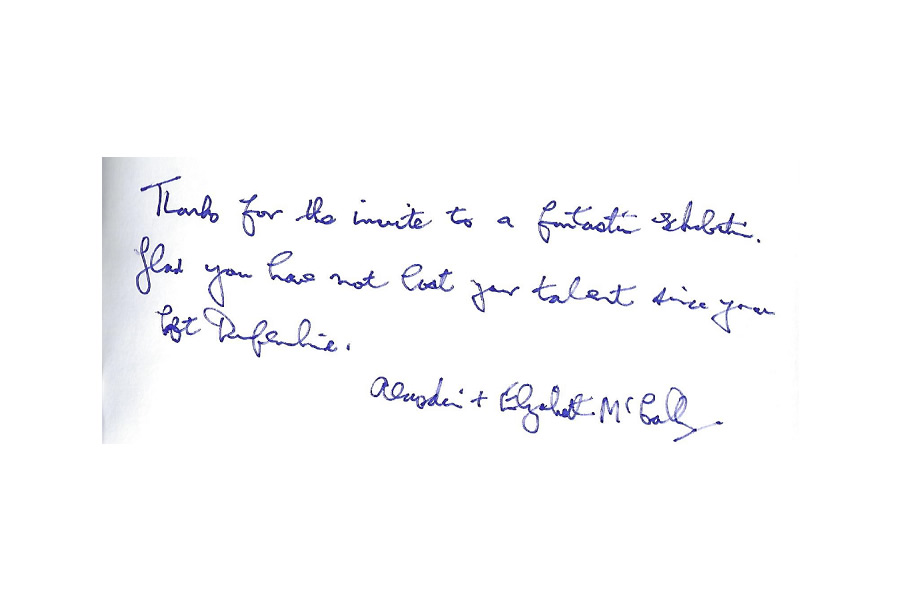 Thanks for the invite to a fantastic exhibition.
Glad you have not lost your talent since you
left Dunfermline.
Alasdair + Elizabeth